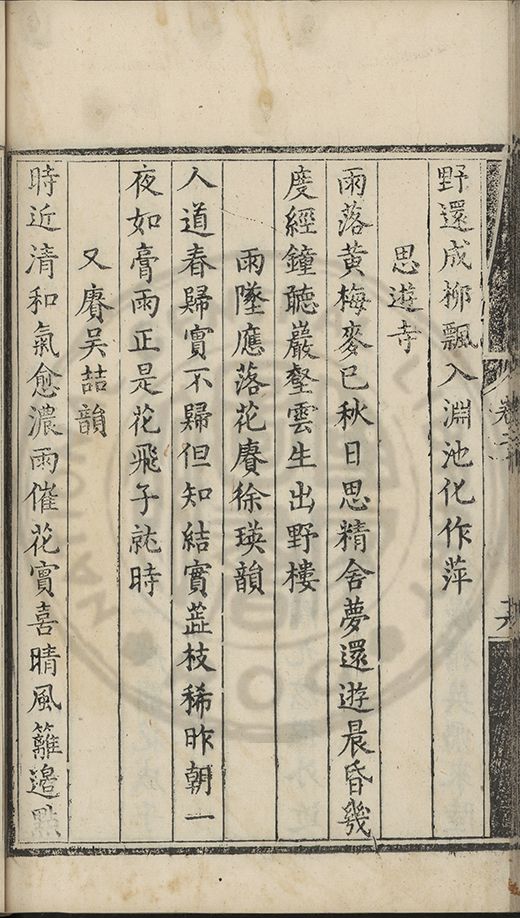 野還成柳飄入淵池化作萍
思遊寺
雨落黃梅麥已秋日思精舍夢還遊晨昏幾
度經鐘聽巖壑雲生出野樓
雨墜應落花賡徐瑛韻
人道春歸實不歸但知結實蕋枝稀昨朝一
夜如膏雨正是花飛子就時
又賡吳喆韻
時近清和氣愈濃雨催花實喜晴風籬邉點